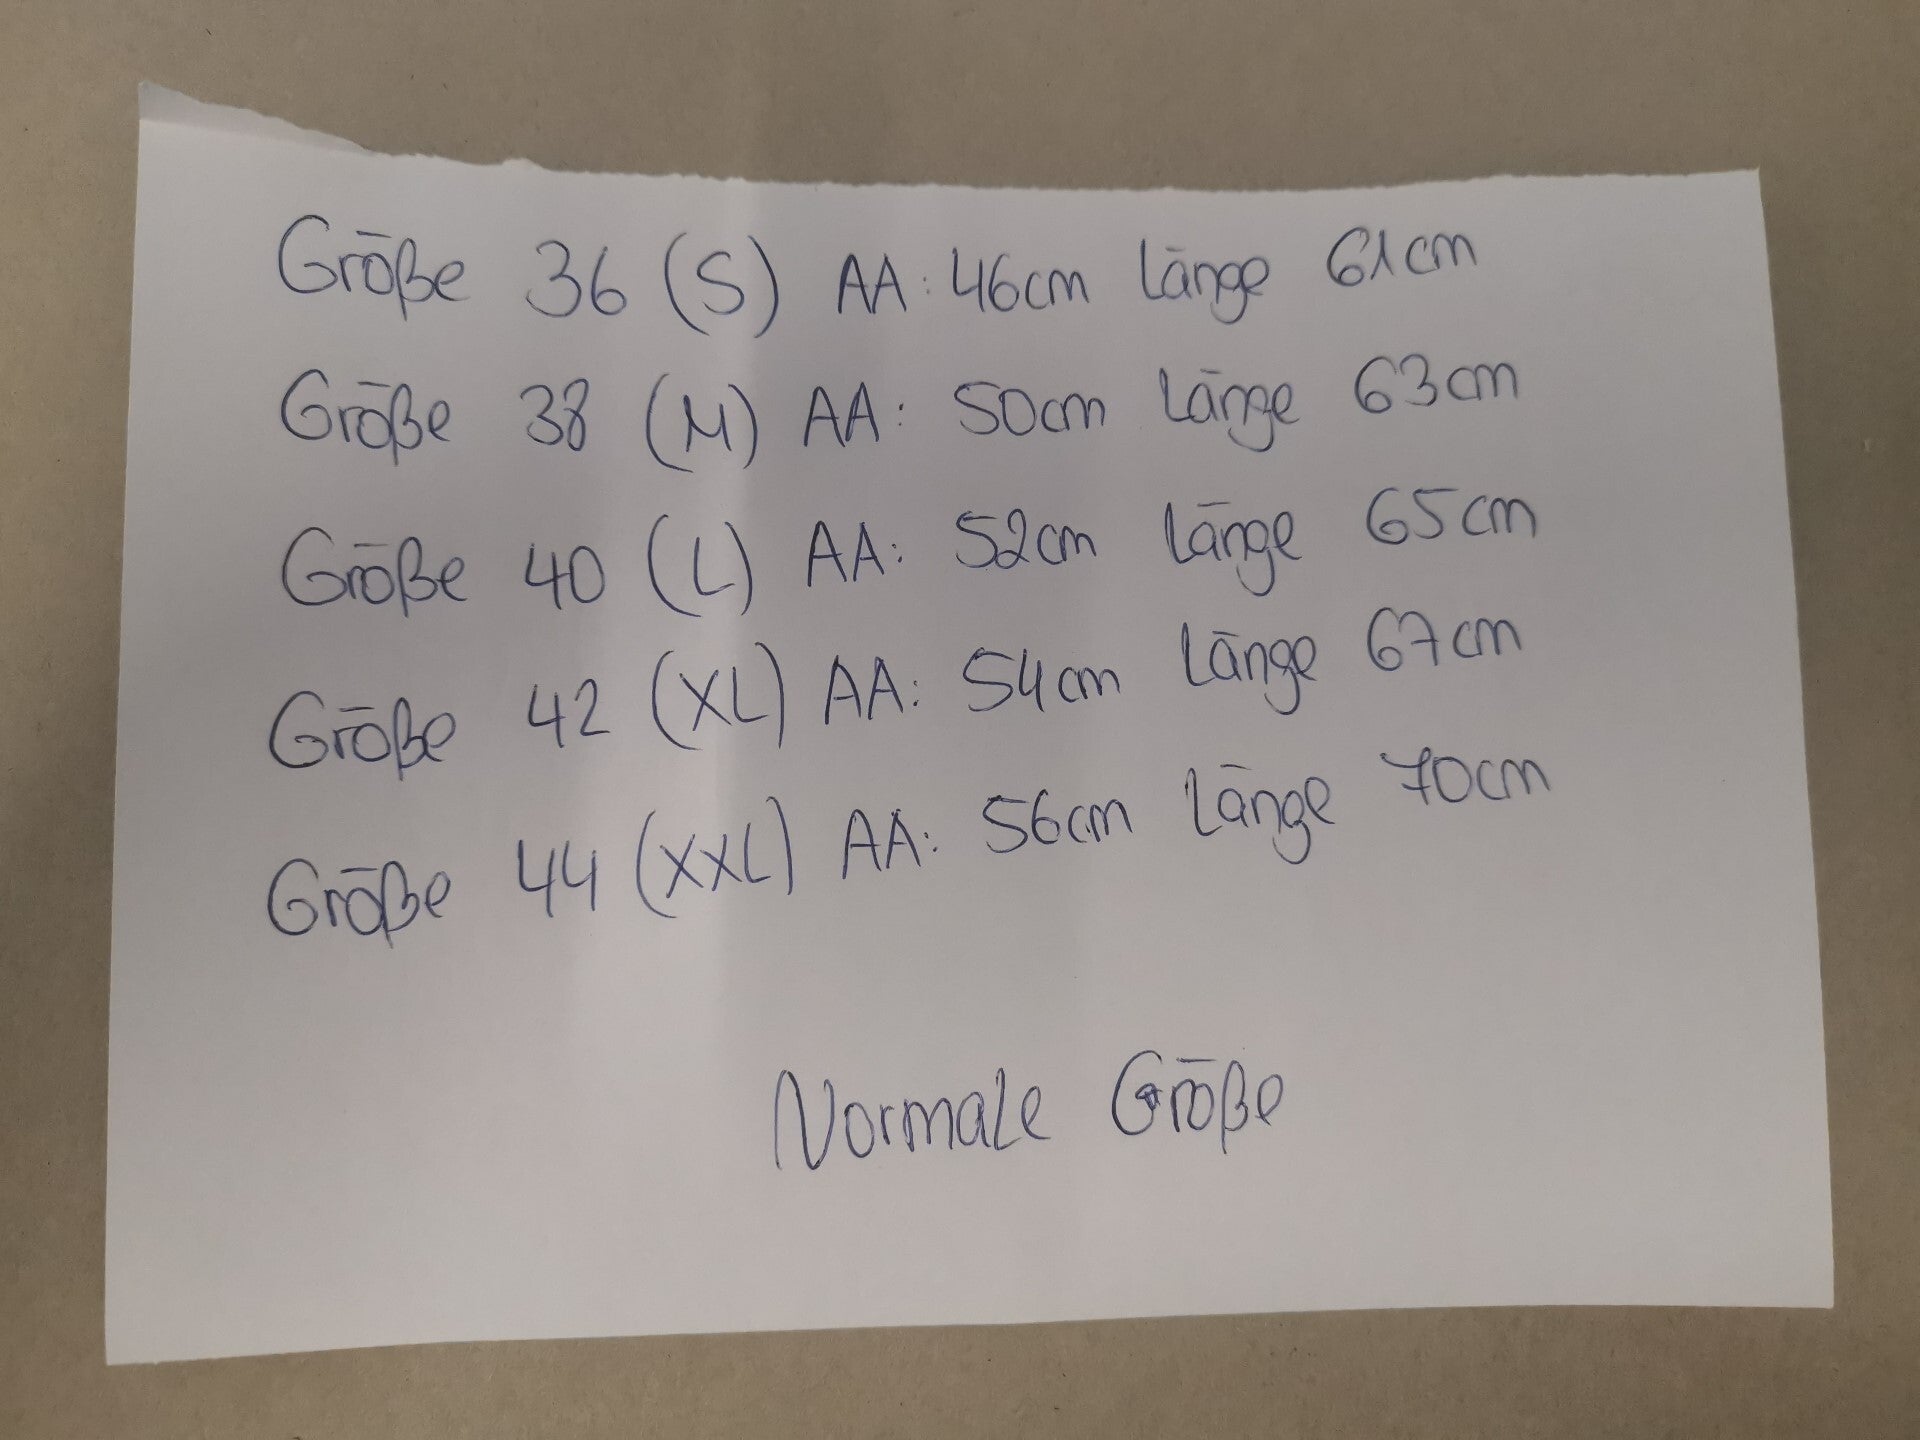 Größe 36 (S) AA: 46cm Länge 61cm
Größe 38 (M) AA: 50cm Länge 63cm
Größe 40 (L) AA: 52cm Länge 65cm
Größe 42 (XL) AA: 54cm Länge 67cm
Größe 44 (XXL) AA: 56cm Länge 70cm
Normale Größe